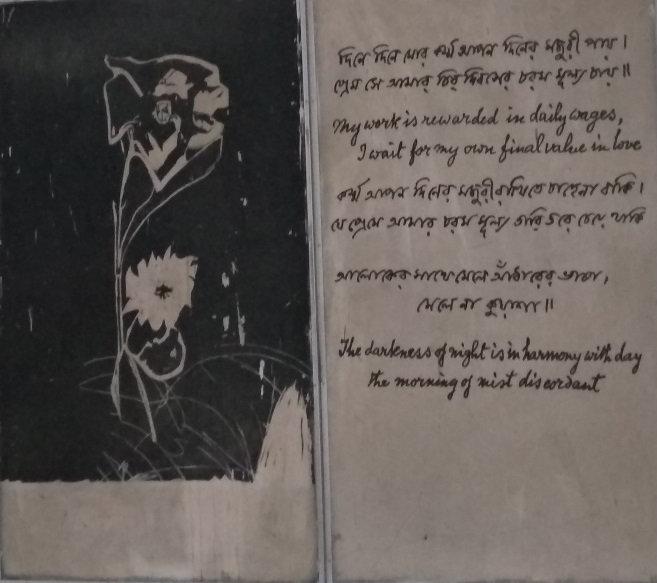 দিনে দিনে মোর কর্ম্ম আপন দিনের মজুরী পায়।
প্রেম সে আমার চির দিবসের চরম মূল্য চায়॥
My work is rewarded in daily wages,
I wait for my own final value in love
কর্ম্ম আপন দিনের মজুরী রাখিতে চাহেনা বাকি।
যে প্রেমে আমার চরম মূল্য তারি তরে চেয়ে থাকি
আলোকের সাথে মেলে আঁধারের ভাষা,
মেলে না কুয়াশা॥
The darkness of night is in harmony with day
the morning of mist discordant